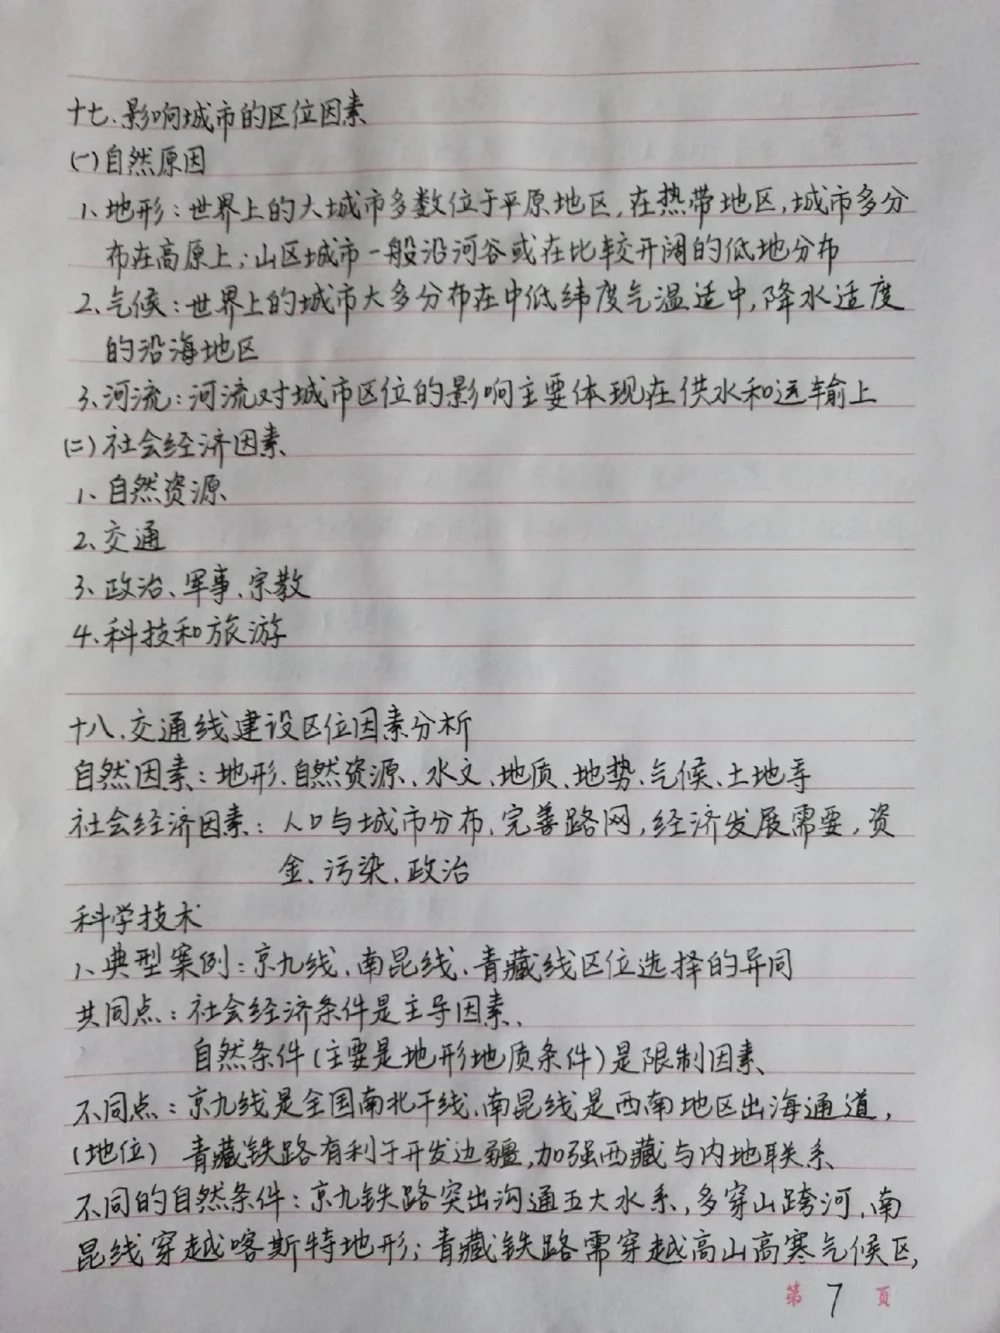 十七、影响城市的区位因素
(一)自然原因
1、地形：世界上的大城市多数位于平原地区，在热带地区，城市多分
布在高原上；山区城市一般沿河谷或在比较开阔的低地分布
2、气候：世界上的城市大多分布在中低纬度气温适中，降水适度
的沿海地区
3、河流：河流对城市区位的影响主要体现在供水和运输上
(二)社会经济因素
1、自然资源
2、交通
3、政治、军事、宗教
4、科技和旅游
十八、交通线建设区位因素分析
自然因素：地形、自然资源、水文、地质、地势、气候、土地等
社会经济因素：人口与城市分布，完善路网，经济发展需要，资
金、污染、政治
科学技术
1、典型案例：京九线、南昆线、青藏线区位选择的异同
共同点：社会经济条件是主导因素、
自然条件(主要是地形地质条件)是限制因素、
不同点：京九线是全国南北干线、南昆线是西南地区出海通道，
(地位) 青藏铁路有利于开发边疆，加强西藏与内地联系、
不同的自然条件：京九铁路突出沟通五大水系，多穿山跨河，南
昆线穿越喀斯特地形；青藏铁路需穿越高山高寒气候区，
第 7 页